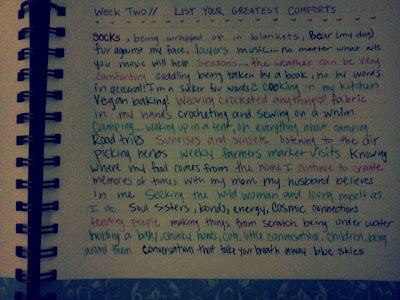 Week Two// LIST YOUR GREATEST COMFORTS
SOCKS, being wrapped up in blankets, Bear (my dog)
fur against my face, layers music... no matter what ails
you music will help seasons... the weather can be very
comforting cuddling being taken by a book, no by words
in general! I'm a sucker for words cooking in my kitchen
Vegan baking! Wearing crocheted anythings fabric
in my hands crocheting and sewing on a whim
Camping... waking up in a tent, oh everything about camping
Road trips sunrises and sunsets listening to the air
picking herbs weekly farmers market visits knowing
where my food comes from the home I continue to create
memories of times with my mom my husband believes
in me Seeking the wild woman and loving myself as
I do Soul sisters, bonds, energy, cosmic connections
feeding people making things from scratch being under water
holding a baby, chunky hands, cute little conversations, children, being
around them conversations that take your breath away blue skies